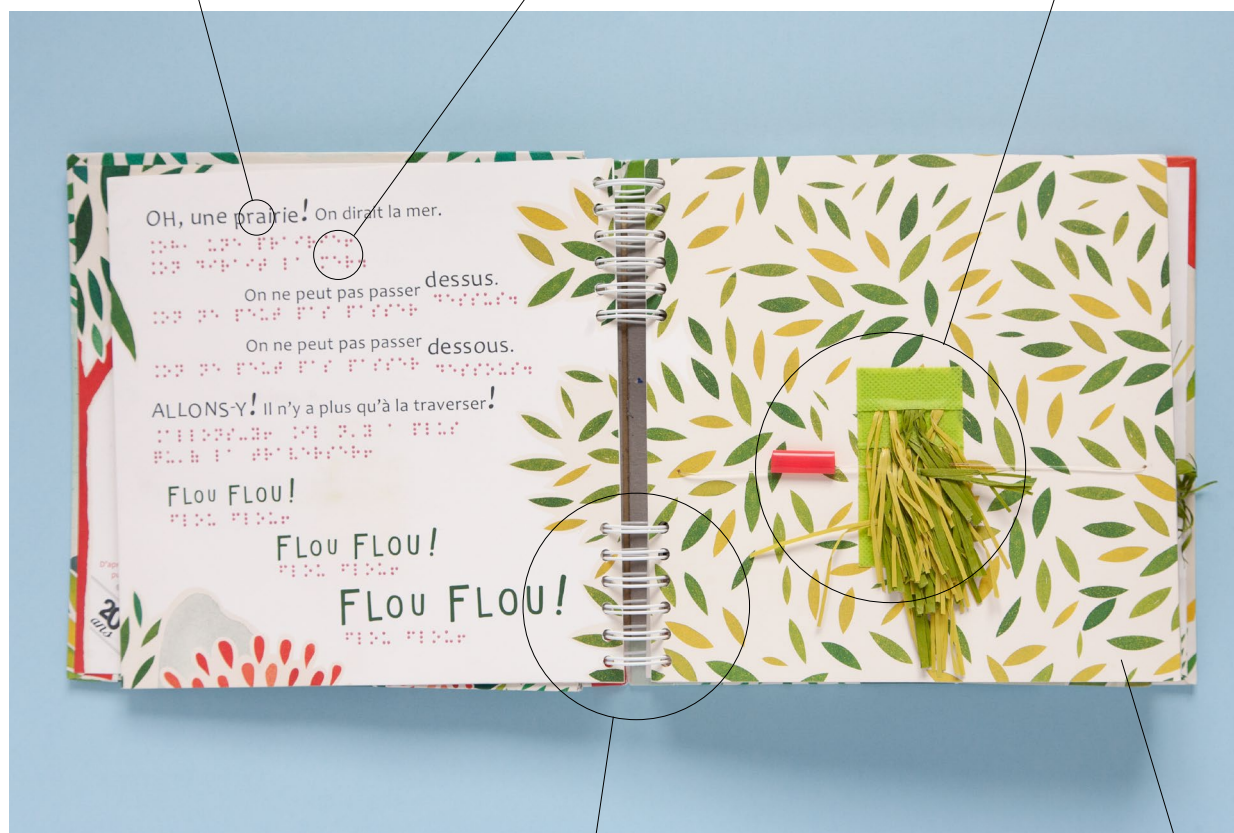 OH, une prairie! On dirait la mer.
On ne peut pas passer dessus.
On ne peut pas passer dessous.
ALLONS-Y! Il n'y a plus qu'à la traverser!
FLOU FLOU!
FLOU FLOU!
FLOU FLOU!
D'ap
20
ans